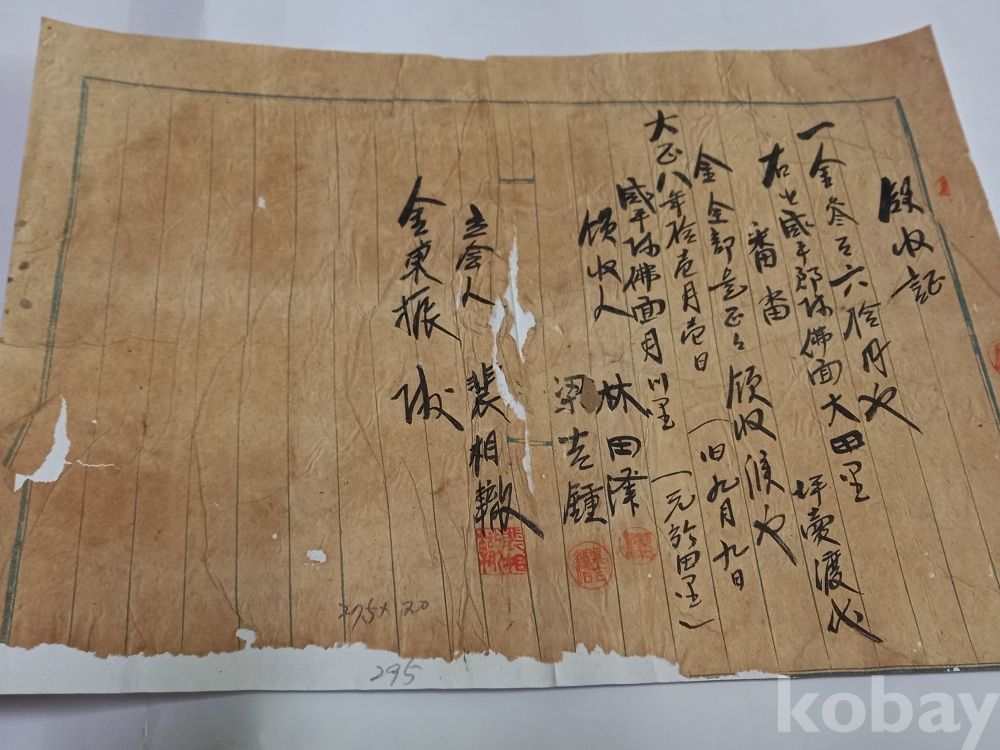 領收証
一金參百六拾円也
右는咸平郡孫佛面大田里
番畓 坪賣渡代
金全部是正々領收候也
大正八年拾壹月壹日 (旧九月九日)
咸平孫佛面月川里 (元於田里)
領收人 林田澤
梁吉鍾
立会人 裴相轍
金東振
295×20
295
kobay